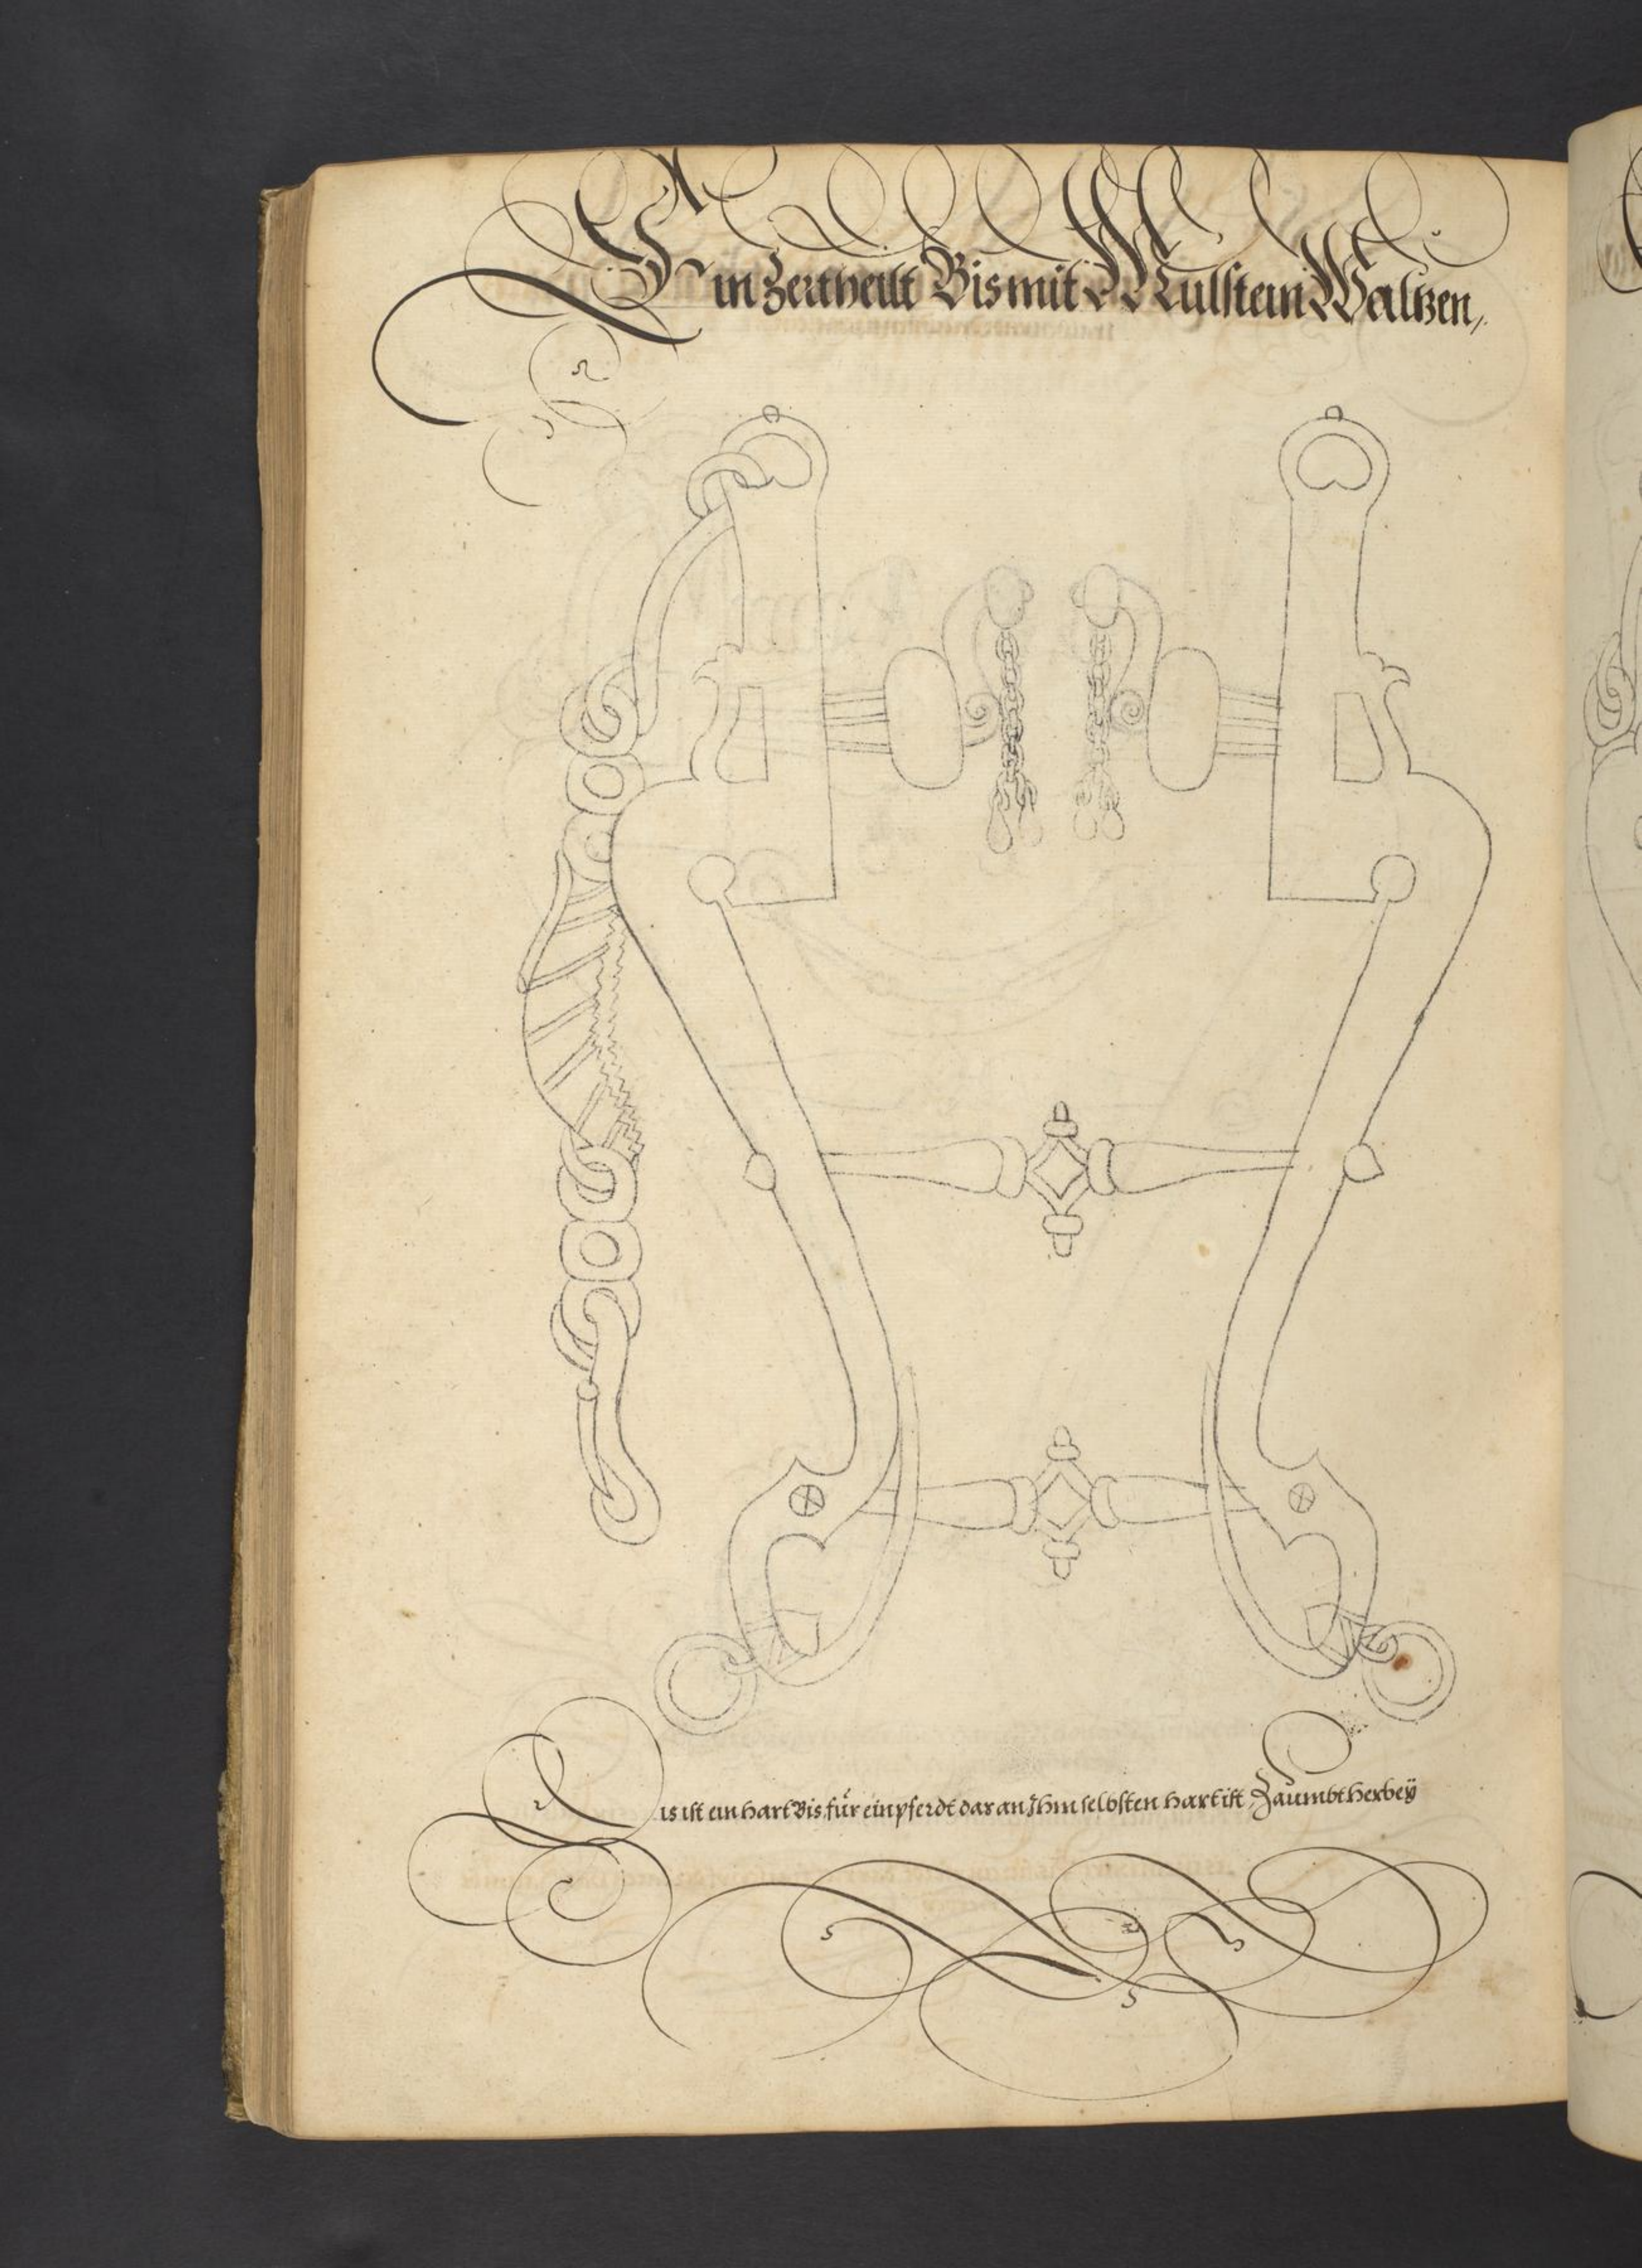 Ein Zertheilt Bis mit Mülstein Waltzen,
Dis ist ein hart Bis für ein pferdt dar an Ihm selbsten hart ist, Zäumbt herbeÿ